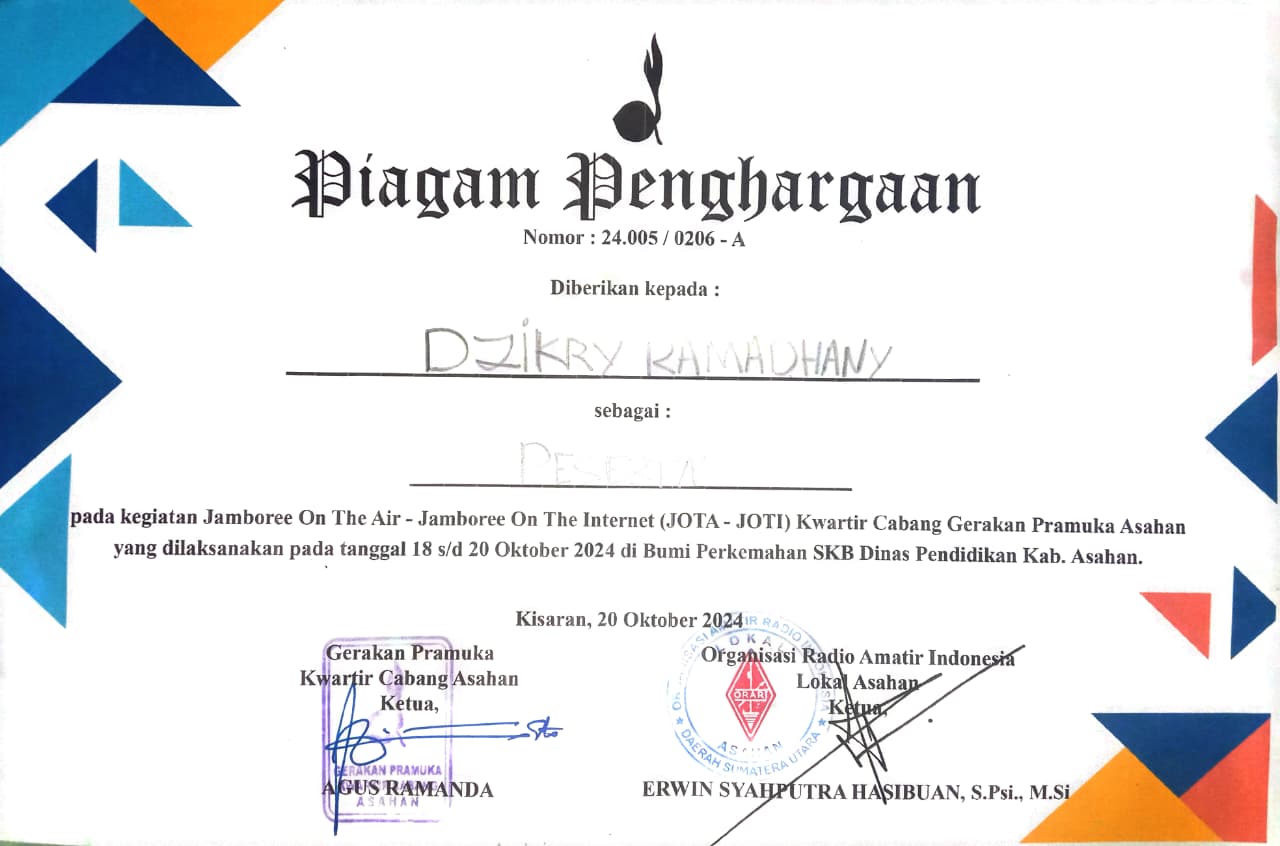 Piagam Penghargaan
Nomor : 24.005 / 0206 - A
Diberikan kepada :
DZIKRY RAMADHANY
sebagai :
PESERTA
pada kegiatan Jamboree On The Air - Jamboree On The Internet (JOTA - JOTI) Kwartir Cabang Gerakan Pramuka Asahan
yang dilaksanakan pada tanggal 18 s/d 20 Oktober 2024 di Bumi Perkemahan SKB Dinas Pendidikan Kab. Asahan.
Kisaran, 20 Oktober 2024
Gerakan Pramuka
Kwartir Cabang Asahan
Ketua,
GERAKAN PRAMUKA
ASAHAN
AGUS RAMANDA
Organisasi Radio Amatir Indonesia
Lokal Asahan
Ketua,
LOKAL
ORARI
ASAHAN
DAERAH SUMATERA UTARA
ERWIN SYAHPUTRA HASIBUAN, S.Psi., M.Si